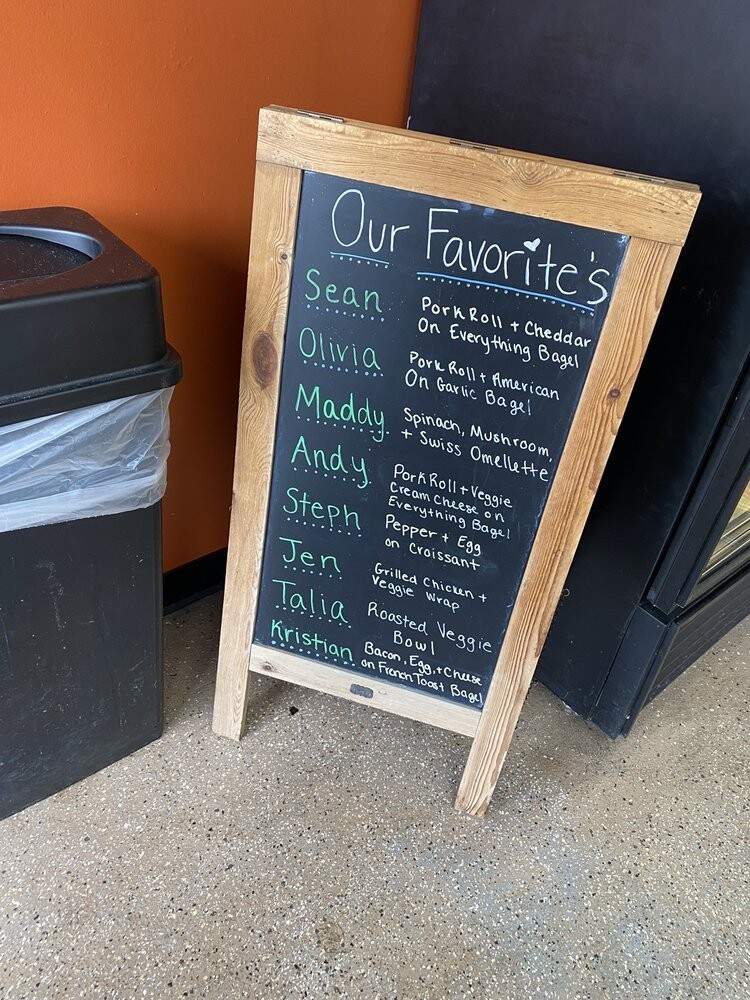 Our Favorite's
Sean
Pork Roll + Cheddar
On Everything Bagel
Olivia
Pork Roll + American
On Garlic Bagel
Maddy
Spinach, Mushroom,
+ Swiss Omellette
Andy
Pork Roll + Veggie
Cream Cheese on
Everything Bagel
Steph
Pepper + Egg
on Croissant
Jen
Grilled Chicken +
Veggie Wrap
Talia
Roasted Veggie
Bowl
Kristian
Bacon, Egg, + Cheese
on French Toast Bagel